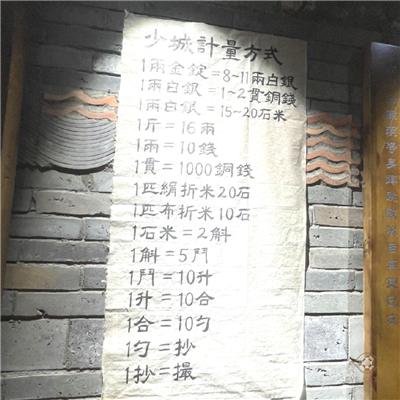 少城計量方式
1兩金錠=8~11兩白銀
1兩白銀=1~2貫銅錢
1兩白銀=15~20石米
1斤=16兩
1兩=10錢
1貫=1000銅錢
1匹絹折米20石
1匹布折米10石
1石米=2斛
1斛=5鬥
1鬥=10升
1升=10合
1合=10勺
1勺=抄
1抄=撮